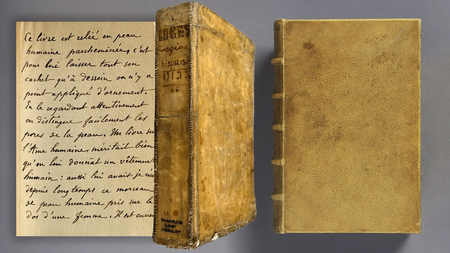 Ce livre est relié en peau
humaine parcheminée, c'est
pour lui laisser tout son
cachet qu'à dessein on n'y a
point appliqué d'ornement.
En le regardant attentivement
on distingue facilement les
pores de la peau. Un livre sur
l'Ame humaine méritait bien
qu'on lui donnat un vêtement
humain : aussi lui avais je
depuis longtemps ce morceau
de peau humaine pris sur le
dos d'une femme. Il est
HARVARD
LAW
LIBRARY